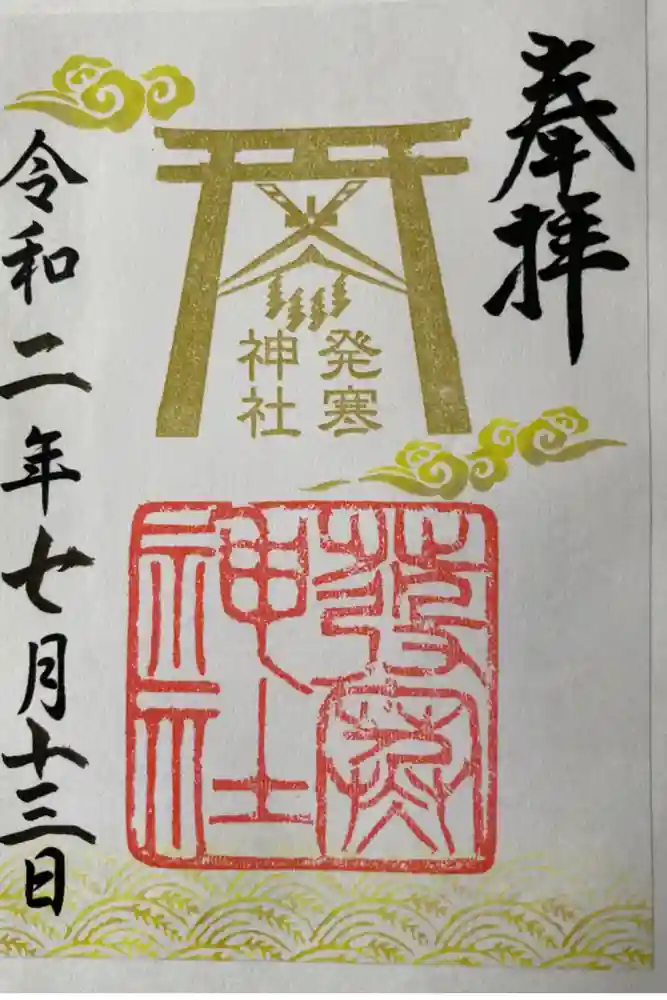 奉拝
発寒
神社
發寒
神社
令和二年七月十三日